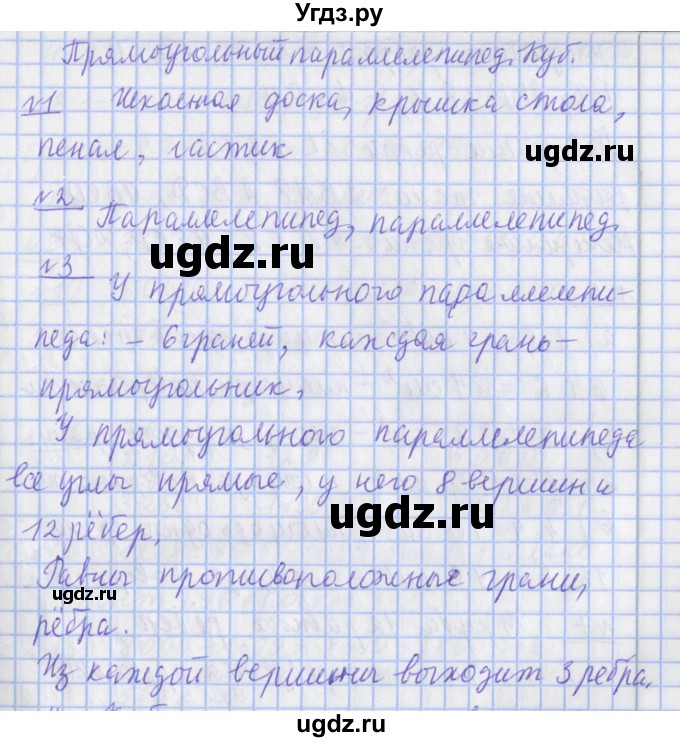 Угдз.ру
Прямоугольный параллелепипед. Куб.
№1 Школьная доска, крышка стола,
пенал, ластик
ugdz.ru
№2
Параллелепипед, параллелепипед.
ugdz.ru
№3
У прямоугольного параллелепи-
педа: - 6 граней, каждая грань-
прямоугольник,
У прямоугольного параллелепипеда
все углы прямые, у него 8 вершин и
ugdz.ru
12 рёбер,
Равны противоположные грани,
ugdz.ru
рёбра.
Из каждой вершины выходит 3 ребра,
ugdz.ru